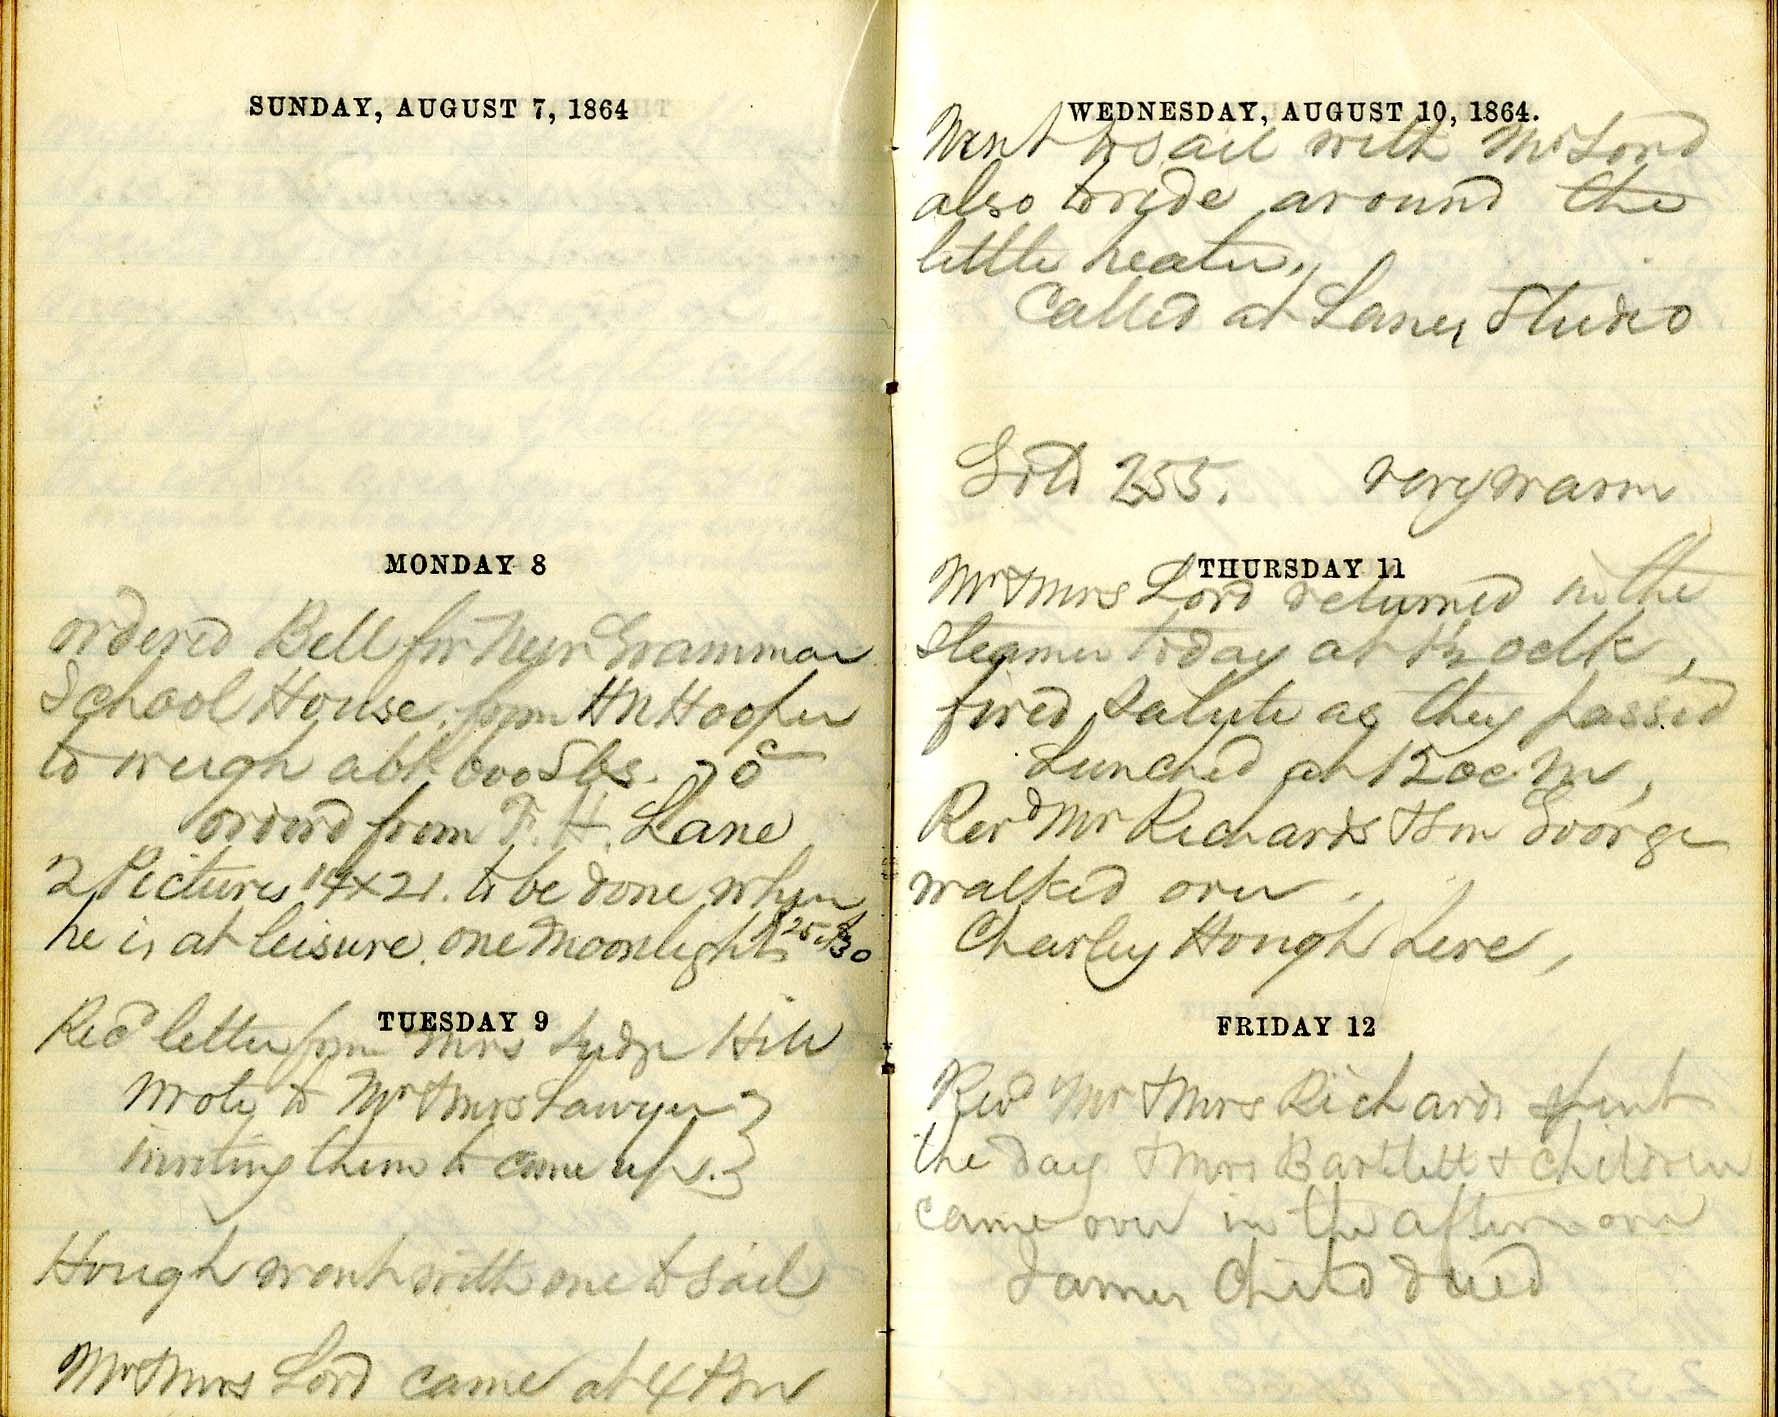 SUNDAY, AUGUST 7, 1864
MONDAY 8
ordered Bell for New Grammar
School House. from HN Hooper
to weigh abt 600 lbs. 70c
orderd from F. H. Lane
2 Pictures 14x21. to be done when
he is at leisure. one Moonlight $25 $30
TUESDAY 9
Recd letter from Mrs Judge Hill
wrote to Mr & Mrs Sawyer
inviting them to come up.
Hough went with me to sail
Mr & Mrs Lord came at 4 PM
WEDNESDAY, AUGUST 10, 1864.
Went to sail with Mr Lord
also to ride around the
little heater,
Called at Lanes Studio
Gold 255. very warm
THURSDAY 11
Mr & Mrs Lord returned in the
Steamer today at 1½ oclk,
fired Salute as they passed
Lunched at 12 oc. M,
Revd Mr Richards & Son George
walked over.
Charley Hough here,
FRIDAY 12
Revd Mr & Mrs Richards spent
the day & Mrs Bartlett & children
came over in the afternoon
James Child died